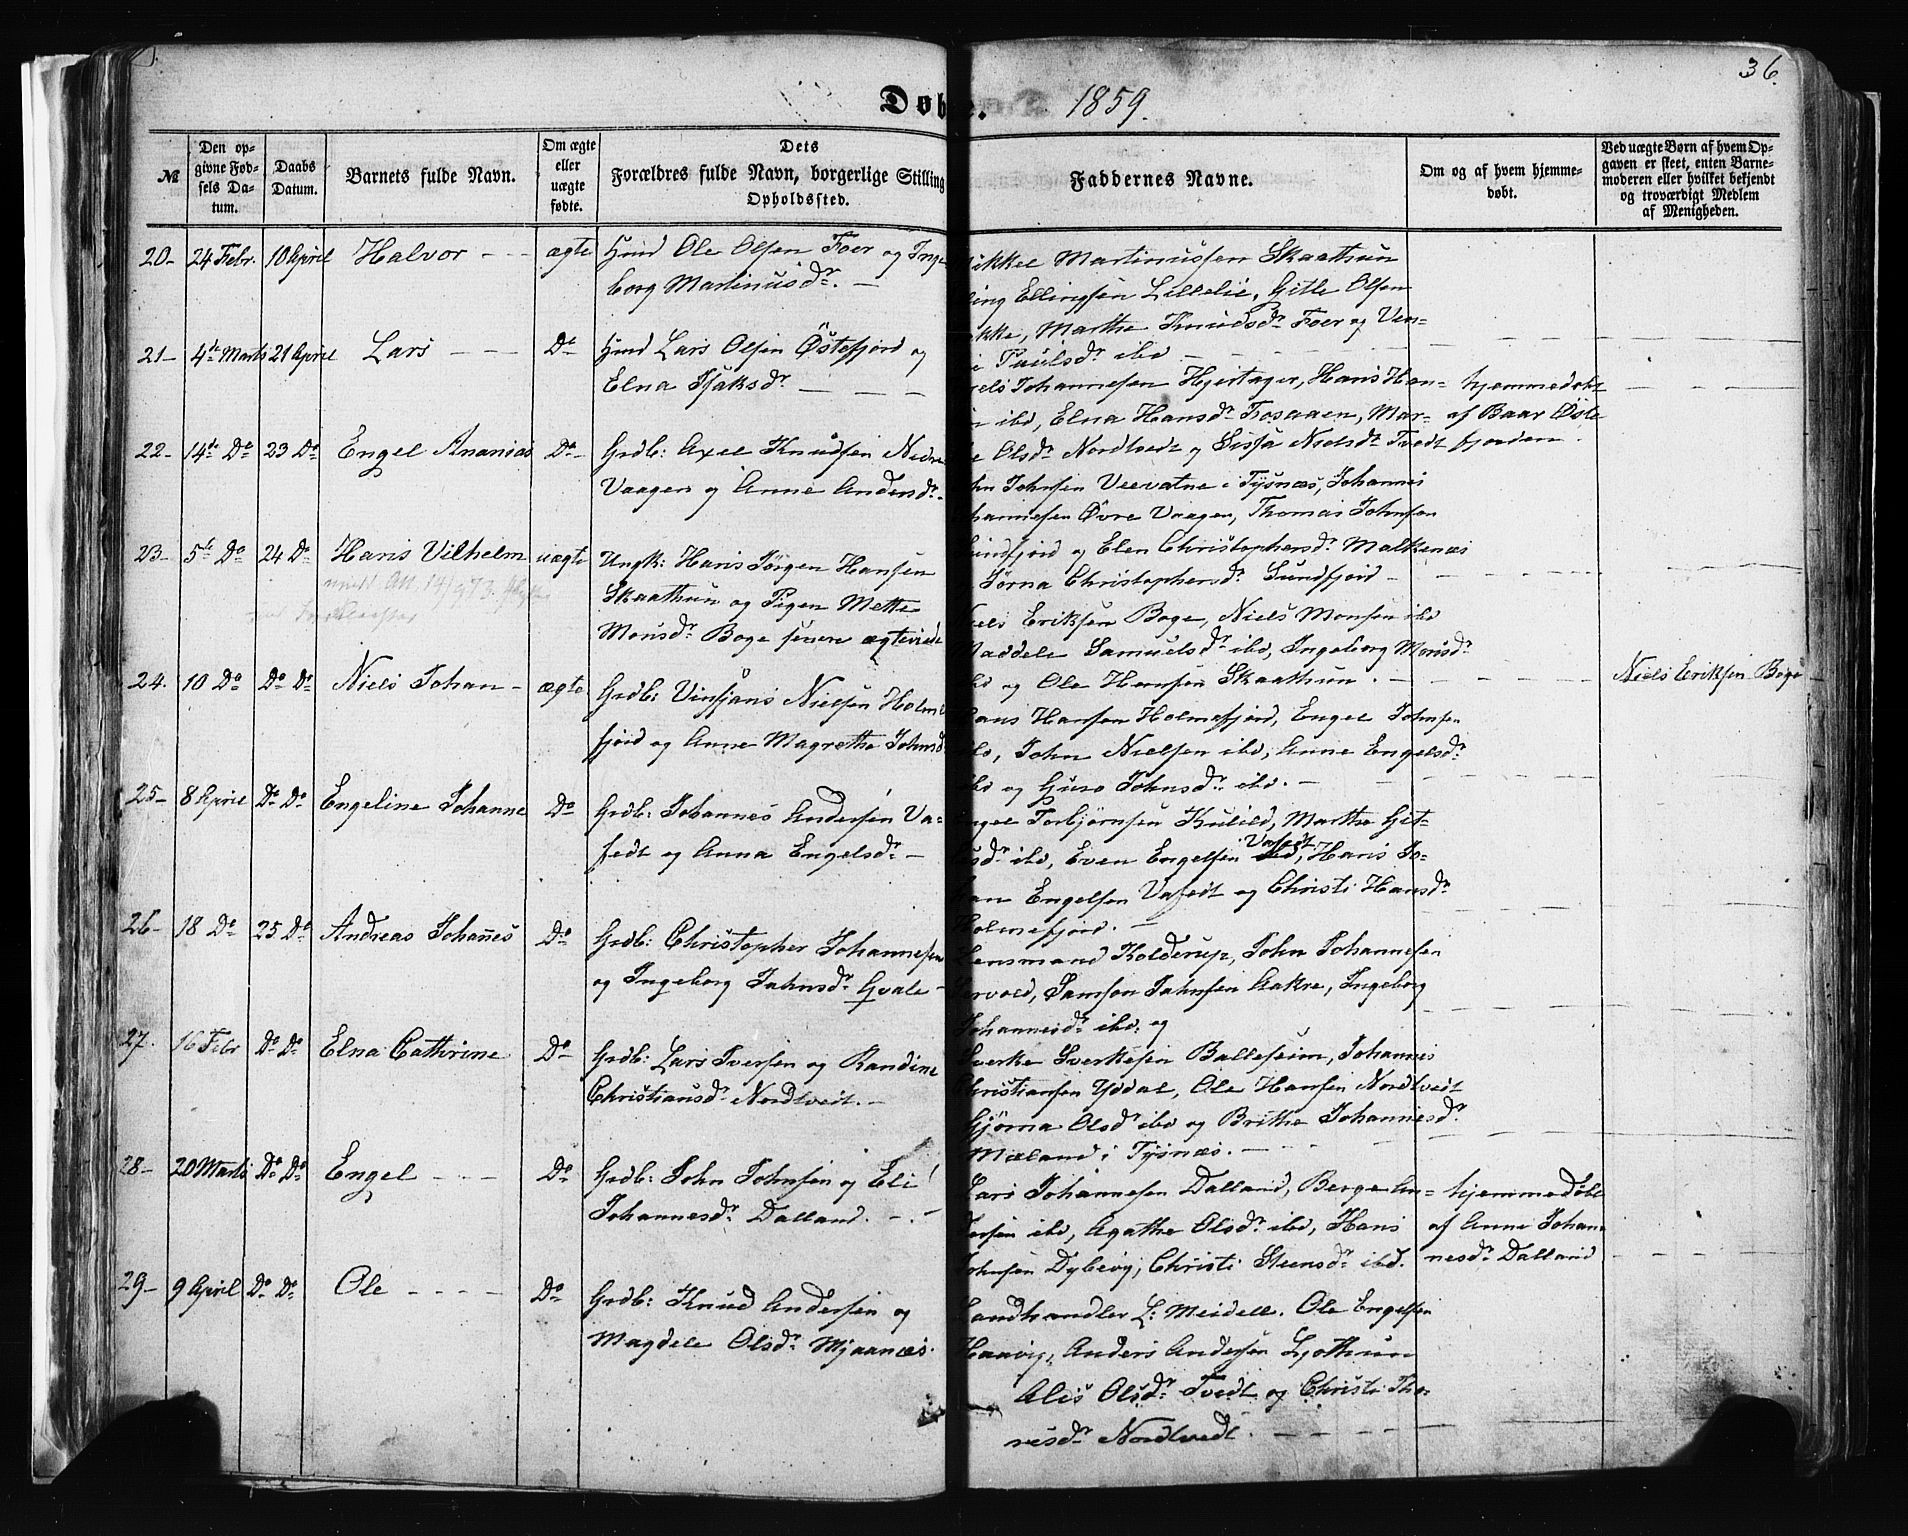 36.
Døbte. 1859.
№
Den opgivne Fødsels Datum.
Daabs Datum.
Barnets fulde Navn.
Om ægte eller uægte fødte.
Dets Forældres fulde Navn, borgerlige Stilling
Opholdssted.
Faddernes Navne.
Om og af hvem hjemmedøbt.
Ved uægte Børn af hvem Opgaven er skeet, enten Barnemoderen eller hvilket bekjendt og troværdigt Medlem af Menigheden.
20- 24 Febr. 10 April Halvor - - - ægte Hmd Ole Olsen Foer og Inge-
borg Martinusdr. -
ikkel Martinussen Skaathun
ling Ellingsen Lillelie, Gitle Olsen
kke, Marthe Knudsdr Foer og Ven-
e Paulsdr ibd - - - -
21- 4de Marts 21 April Lars - - - Do Hmd Lars Olsen Østefjord og
Elna Isaksdr - - -
els Johannesen Hjertager, Hans Han-
n ibd, Elna Hansdr Fosaaen, Mar-
e Olsdr Nordtvedt og Sissa Nielsdr Tvedt
hjemmedøbt
af Baar Øste
fjorden.
22- 14de Do 23 Do Engel Ananias Do Grdb: Axel Knudsen Nedre
Vaagen og Anne Andersdr.
hn Johnsen Veevatne i Tysnæs, Johannes
hannesen Øvre Vaagen, Thomas Johnsen
undfjord og Elen Christophersdr Malkenæs
Jørna Christophersdr Sundfjord -
23- 5te Do 24 Do Hans Vilhelm uægte Ungk: Hans Jørgen Hansen
Skaathun og Pigen Mette
Monsdr Boge senere ægteviede
iels Eriksen Boge, Niels Monsen ibd
Maddele Samuelsdr ibd, Ingeborg Monsdr
ibd og Ole Hansen Skaathun. -
Niels Eriksen Boge
24. 10 Do Do Do Niels Johan - ægte Grdb: Vinsjans Nielsen Holme
fjord og Anne Magrethe Johnsd
Hans Hansen Holmefjord, Engel Johnsen
ibd, John Nielsen ibd, Anne Engelsdr
ibd og Guro Johnsdr ibd. -
25- 8 April Do Do Engeline Johanne Do Grdb: Johannes Andersen Va-
fedt og Anna Engelsdr -
ngel Torbjørnsen Kulild, Marthe Git-
lesdr ibd, Even Engelsen Vafedt, Hans Jo-
han Engelsen Vafedt og Christi Hansdr
Holmefjord. -
26- 18 Do 25 Do Andreas Johannes Do Grdb: Christopher Johannesen
og Ingeborg Jahnsdr Gvale -
Lensmand Kolderup, John Johannesen
ervold, Samson Jahnsen Aakre, Ingeborg
Johannesdr ibd: og
27. 16 Febr Do Do Elna Cathrine Do Grdb: Lars Iversen og Randine
Christiansdr Nordtvedt. -
Sverke Sverkesen Balleseim, Johannes
Christiansen Yddal, Ole Hansen Nordtvedt
Gjørna Olsdr ibd og Brithe Johannesdr
Mæland i Tysnæs. -
28- 20 Marts Do Do Engel - - - Do Grdb: John Johnsen og Eli
Johannesdr Dalland. -
Lars Johannesen Dalland, Berge An-
dersen ibd, Agathe Olsdr ibd, Hans
Johnsen Dybevig, Christi Steensdr ibd.
hjemmedøbt
af Anne Johan-
nesdr Dalland
29- 9 April Do Do Ole - - - - Do Grdb: Knud Andersen og
Magdele Olsdr Mjaanæs.
Landhandler L: Meidell. Ole Engelsen
Haavig, Anders Andersen Lythun
Alis Olsdr Tvedt og Christi Tho-
resdr Nordtvedt. - - - -